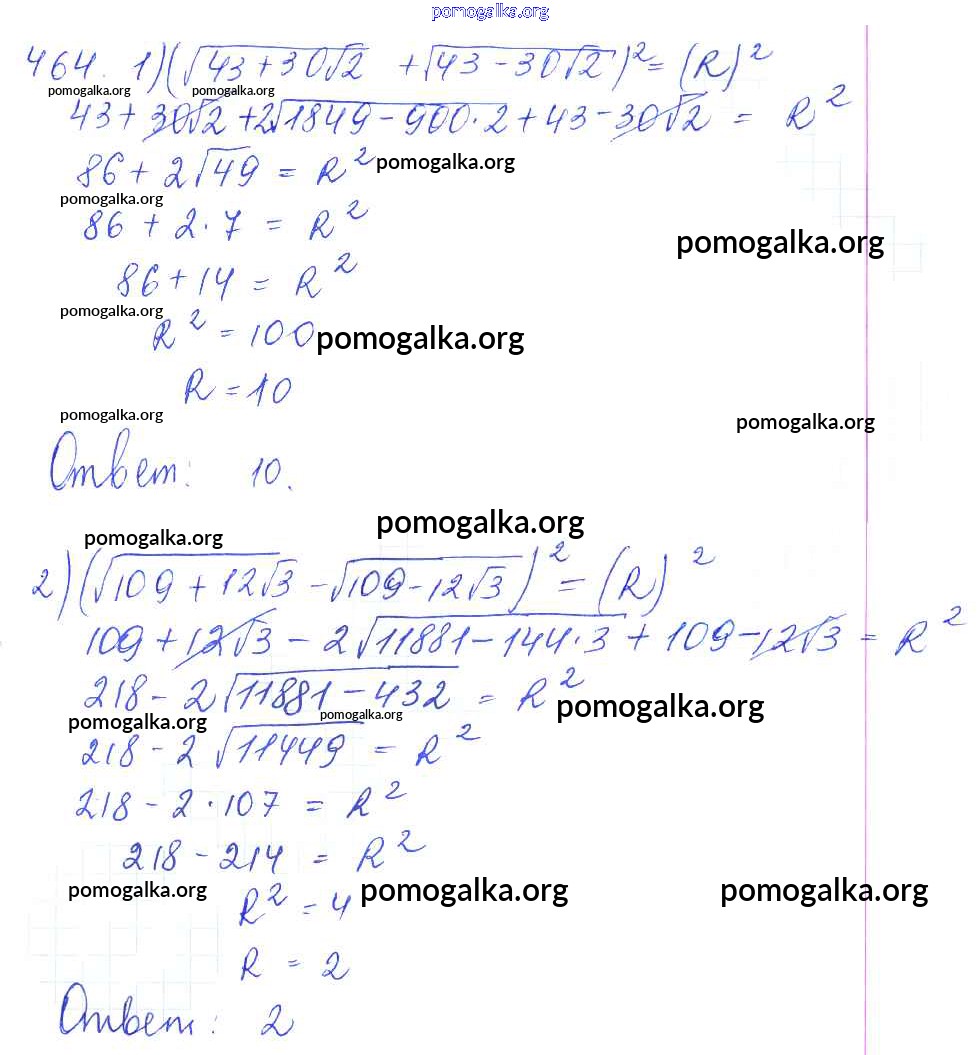 pomogalka.org
464. 1)(√43+30√2 + √43-30√2)² = (R)²
pomogalka.org pomogalka.org
43 + 30√2 + 2√1849-900·2 + 43 - 30√2 = R²
86 + 2√49 = R² pomogalka.org
pomogalka.org
86 + 2·7 = R²
pomogalka.org
86 + 14 = R²
pomogalka.org
R² = 100 pomogalka.org
R = 10
pomogalka.org pomogalka.org
Ответ: 10.
pomogalka.org
pomogalka.org
2)(√109+12√3 - √109-12√3)² = (R)²
109 + 12√3 - 2√11881-144·3 + 109 - 12√3 = R²
218 - 2√11881-432 = R² pomogalka.org
pomogalka.org pomogalka.org
218 - 2√11449 = R²
218 - 2·107 = R²
218 - 214 = R²
pomogalka.org R² = 4 pomogalka.org pomogalka.org
R = 2
Ответ: 2